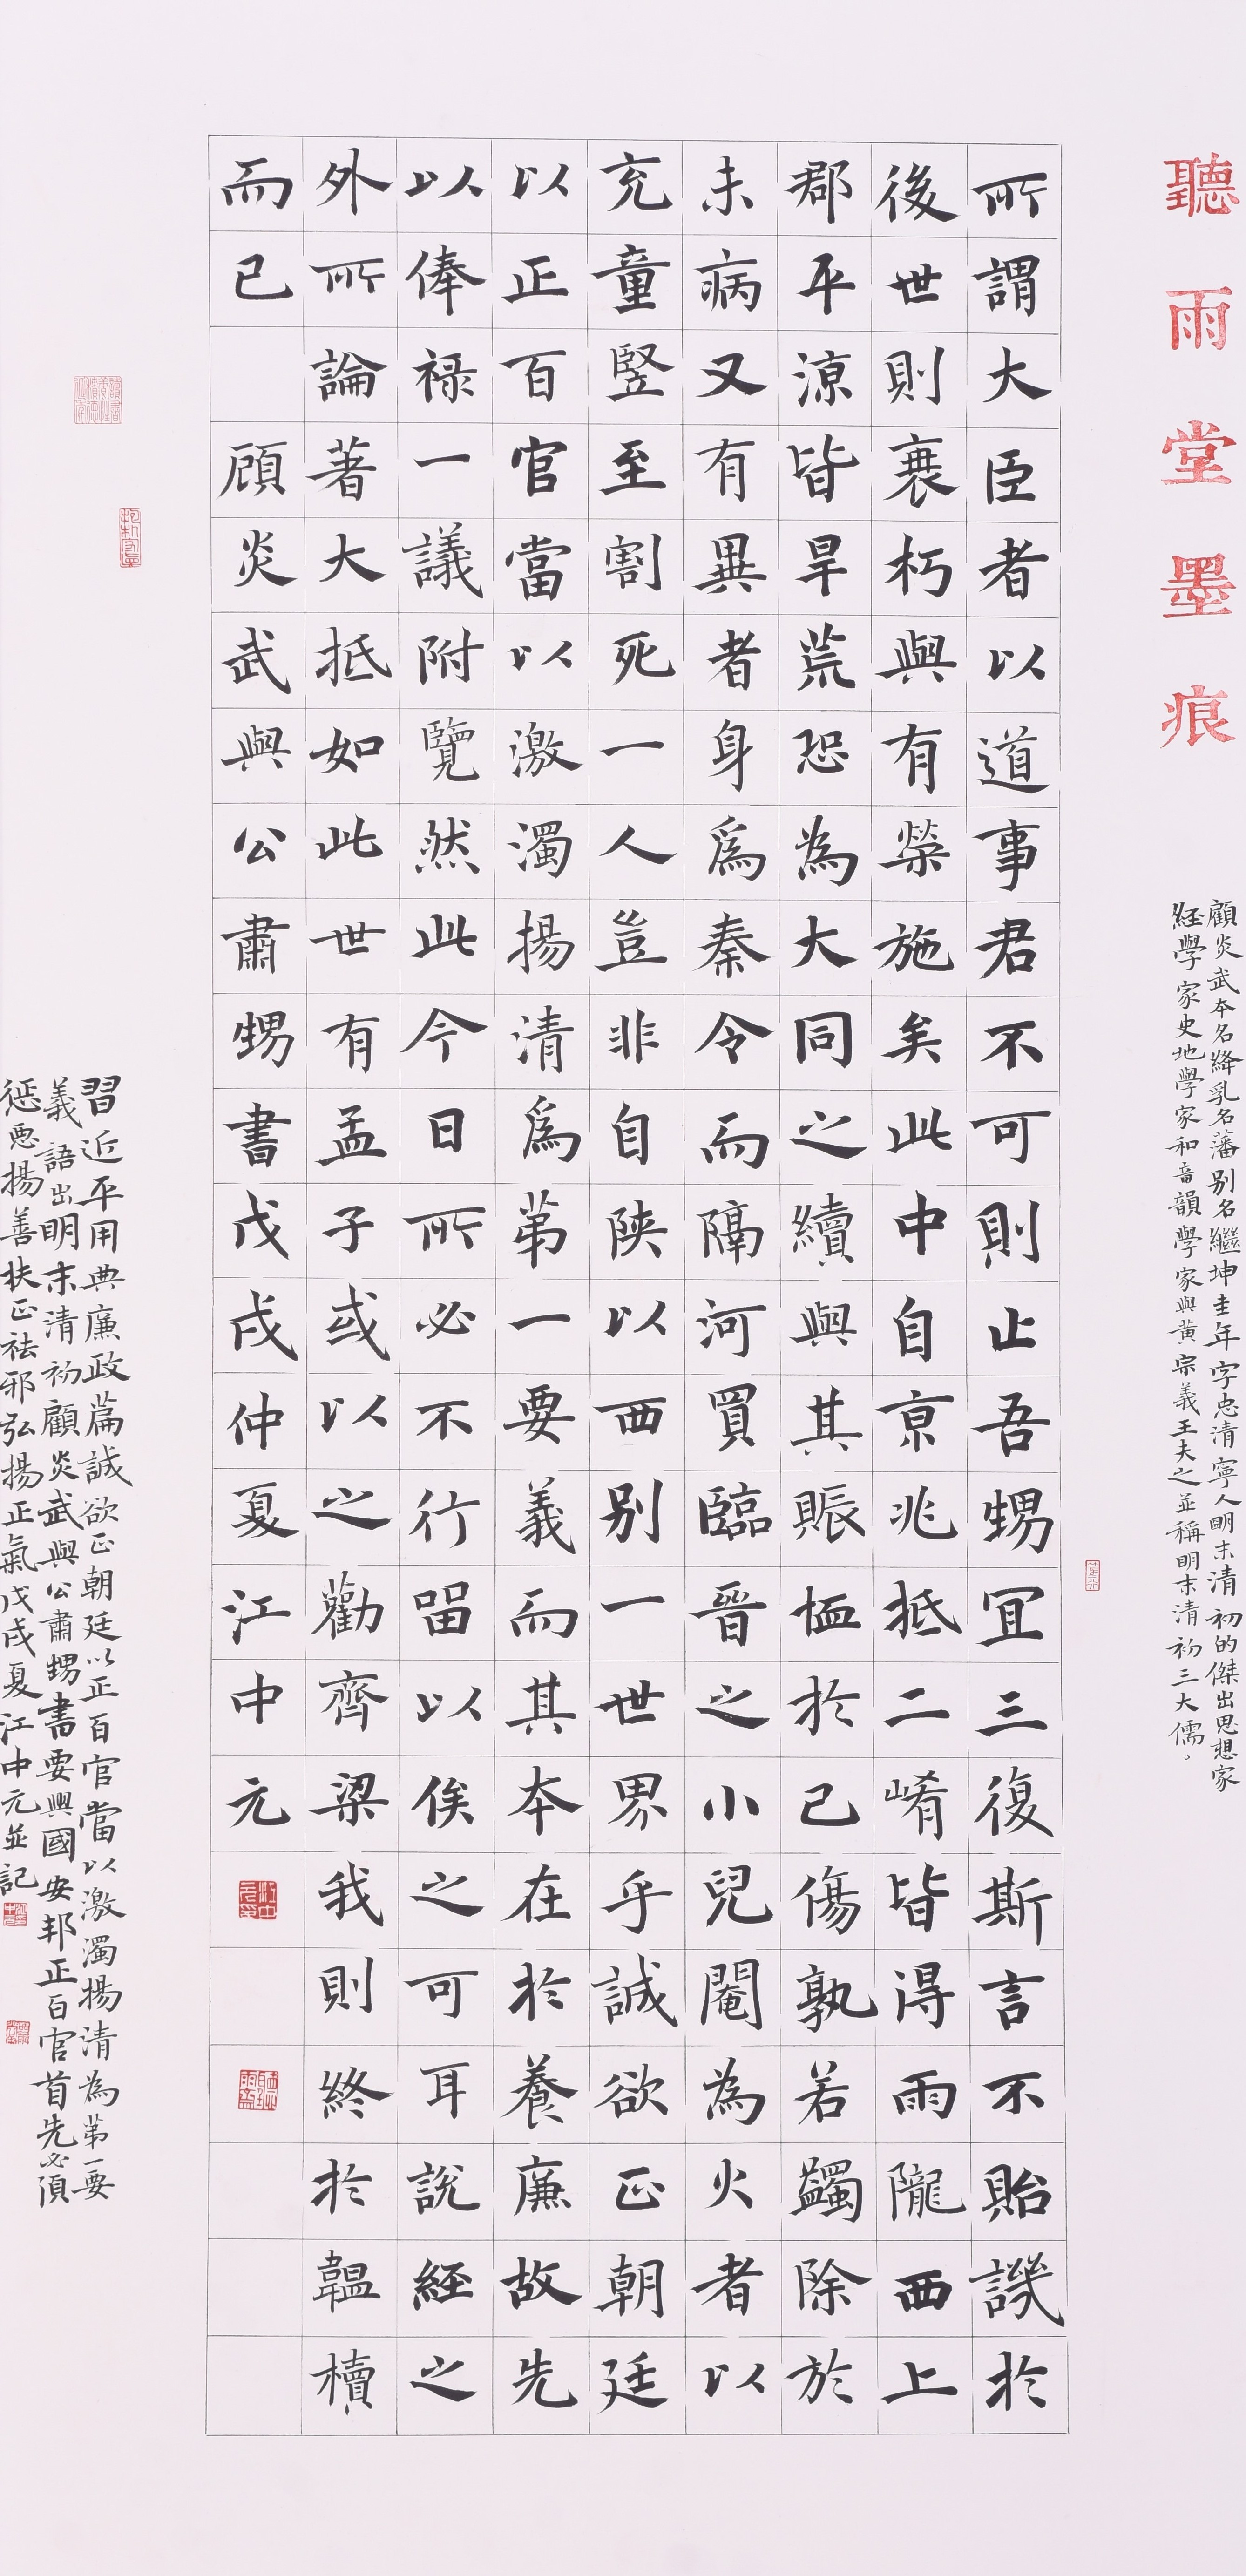 聽雨堂墨痕
顧炎武本名絳乳名藩别名繼坤圭年字忠清寧人明末清初的傑出思想家
經學家史地學家和音韻學家與黄宗義王夫之並稱明末清初三大儒。
所謂大臣者以道事君不可則止吾甥宜三復斯言不貽譏於
後世則衰朽與有榮施矣此中自京兆抵二崤皆得雨隴西上
郡平涼皆旱荒恐為大同之續與其賑恤於已傷孰若蠲除於
未病又有異者身爲秦令而隔河買臨晉之小兒閹為火者以
充童豎至割死一人豈非自陝以西别一世界乎誠欲正朝廷
以正百官當以激濁揚清爲第一要義而其本在於養廉故先
以俸禄一議附覽然此今日所必不行留以俟之可耳說經之
外所論著大抵如此世有孟子或以之勸齊梁我則終於韞櫝
而已 顧炎武與公肅甥書戊戌仲夏江中元
習近平用典廉政篇誠欲正朝廷以正百官當以激濁揚清為第一要
義語出明末清初顧炎武與公肅甥書要興國安邦正百官首先必須
懲惡揚善扶正祛邪弘揚正氣戊戌夏江中元並記